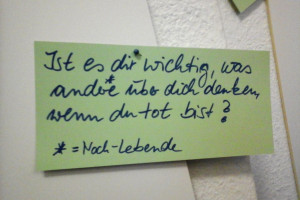 Ist es dir wichtig, was
andre* über dich denken,
wenn du tot bist?
* = Noch-Lebende